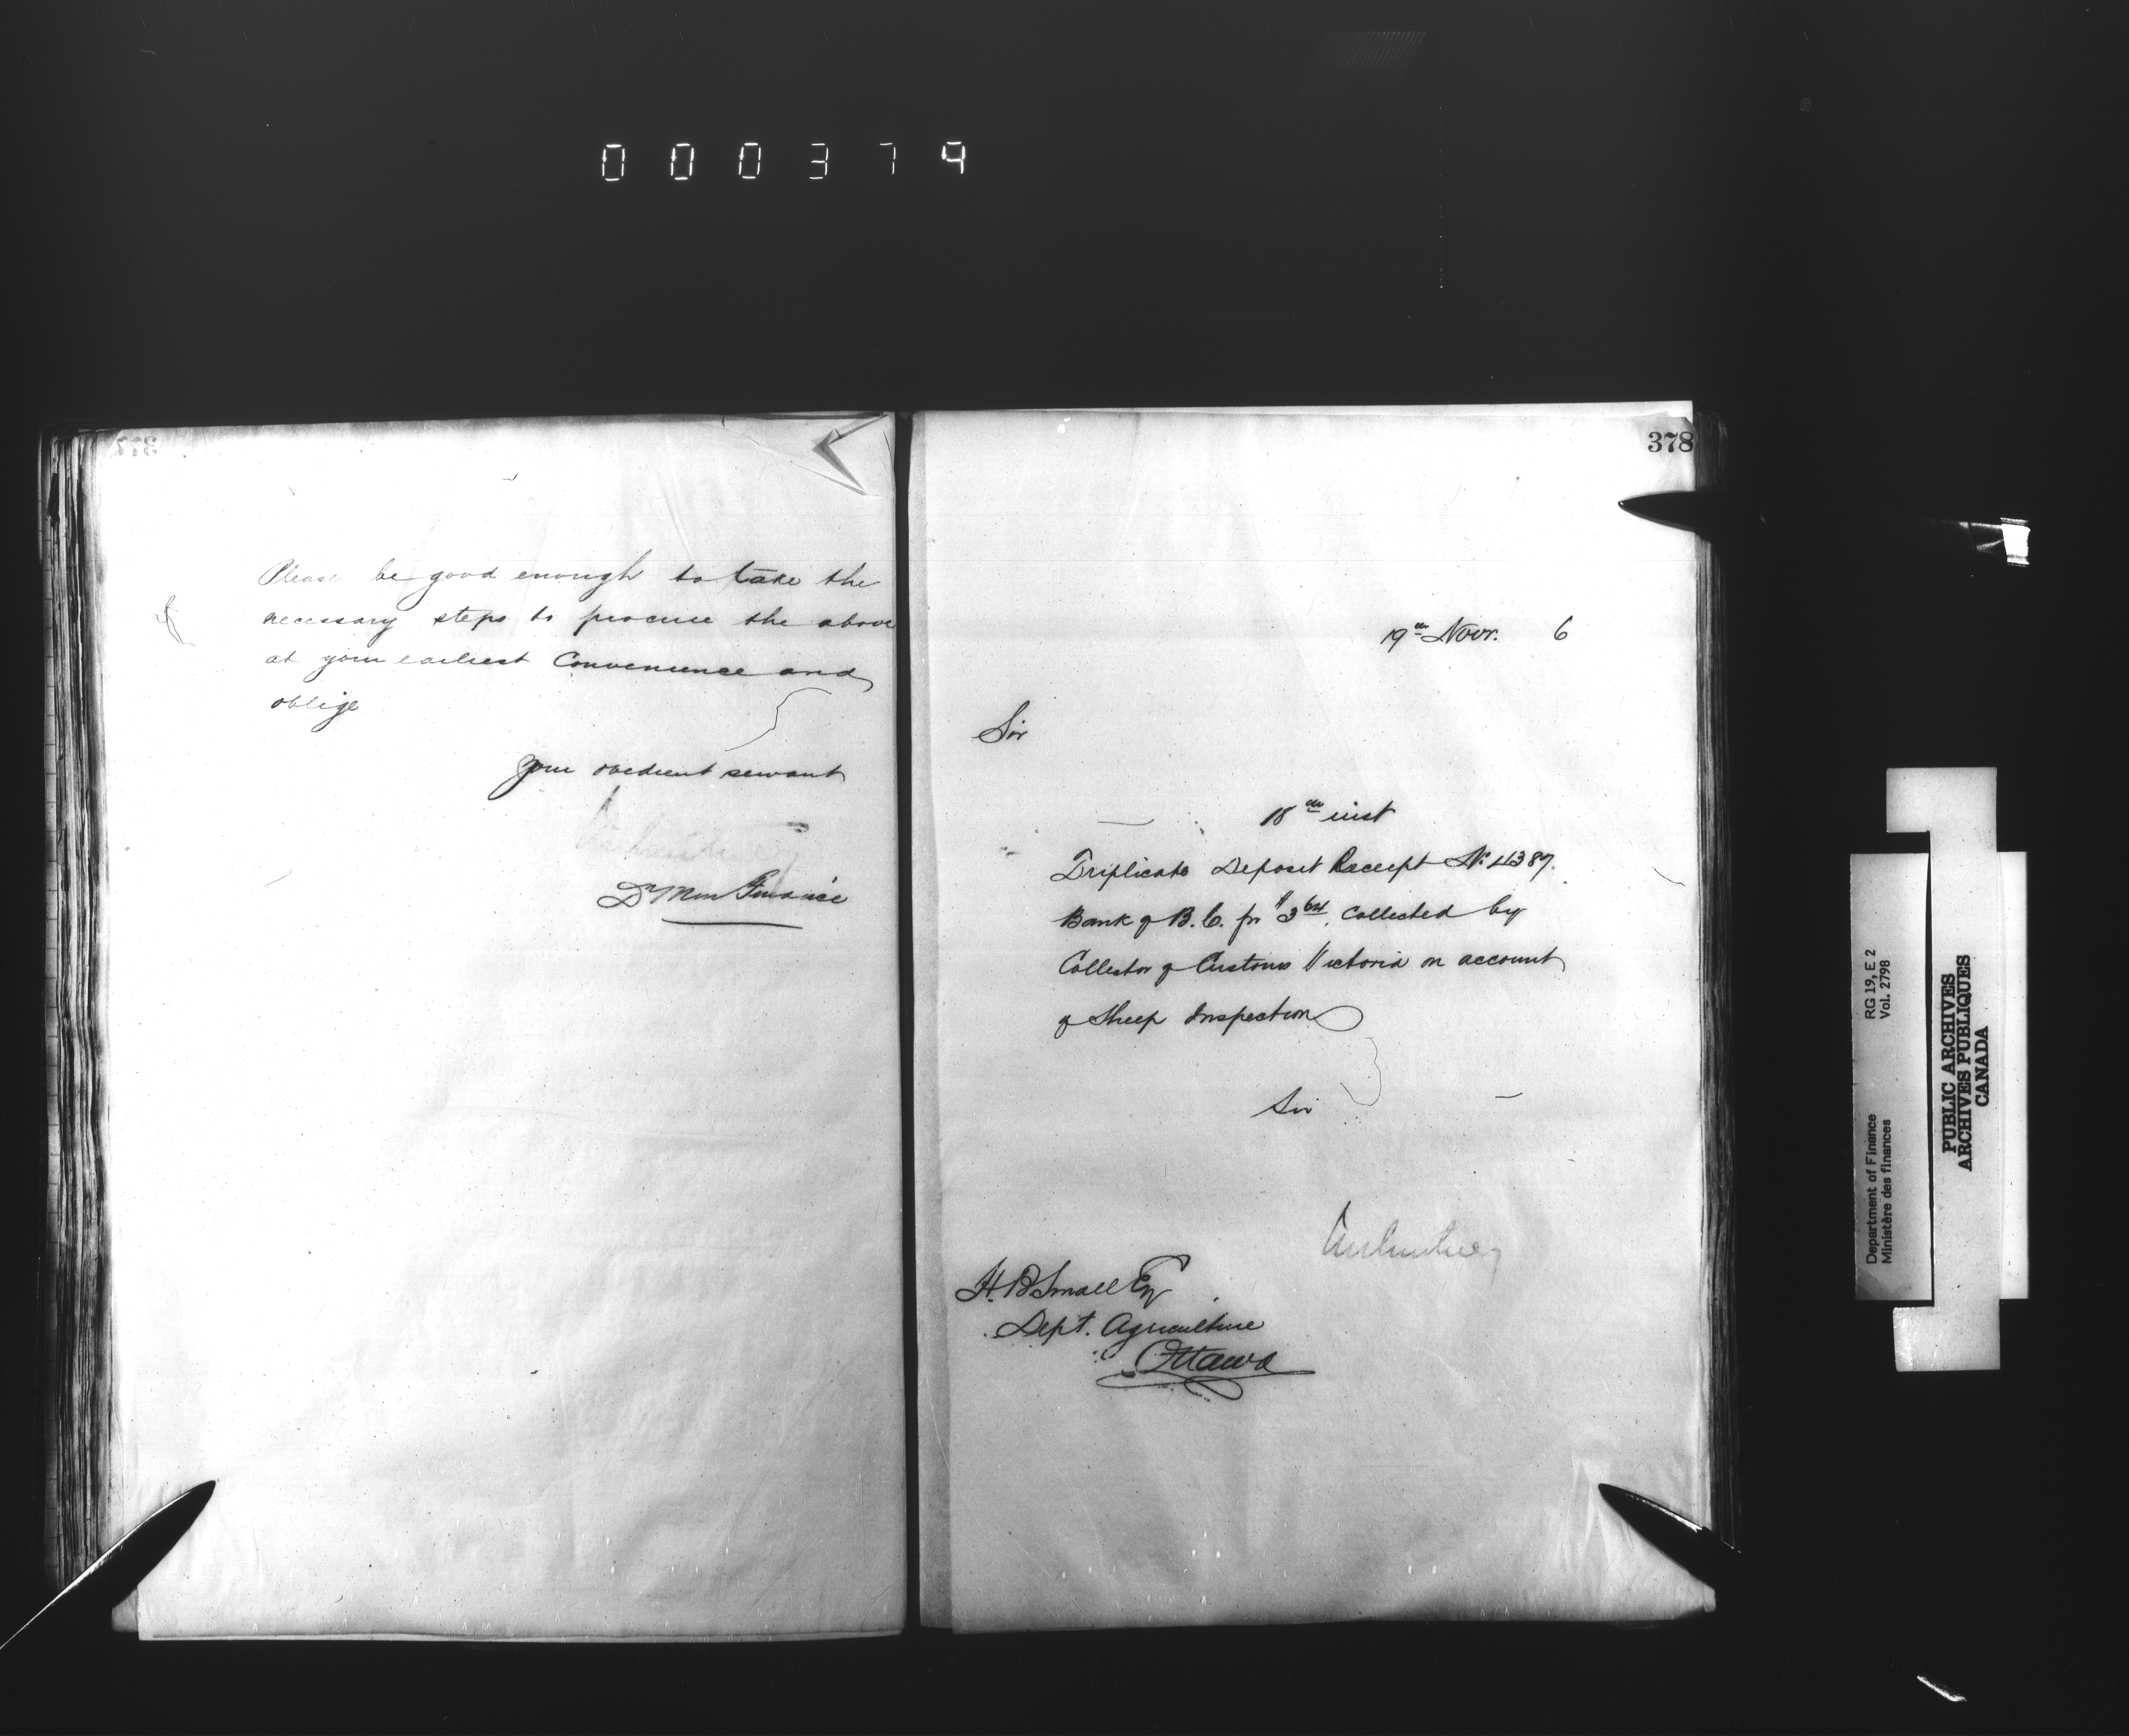 000379
Please be good enough to take the
necessary steps to procure the above
at your earliest Convenience and
oblige
Your obedient servant
Dy Min Finance
378
19th Novr. 6
Sir
18th inst
Triplicate Deposit Receipt No 4387.
Bank of B.C. for $3 64. collected by
Collector of Customs Victoria on account
of Sheep Inspection
Sir
H. B Small Esq
Dept. Agriculture
Ottawa
RG 19, E 2
Vol. 2798
Department of Finance
Ministère des finances
PUBLIC ARCHIVES
ARCHIVES PUBLIQUES
CANADA